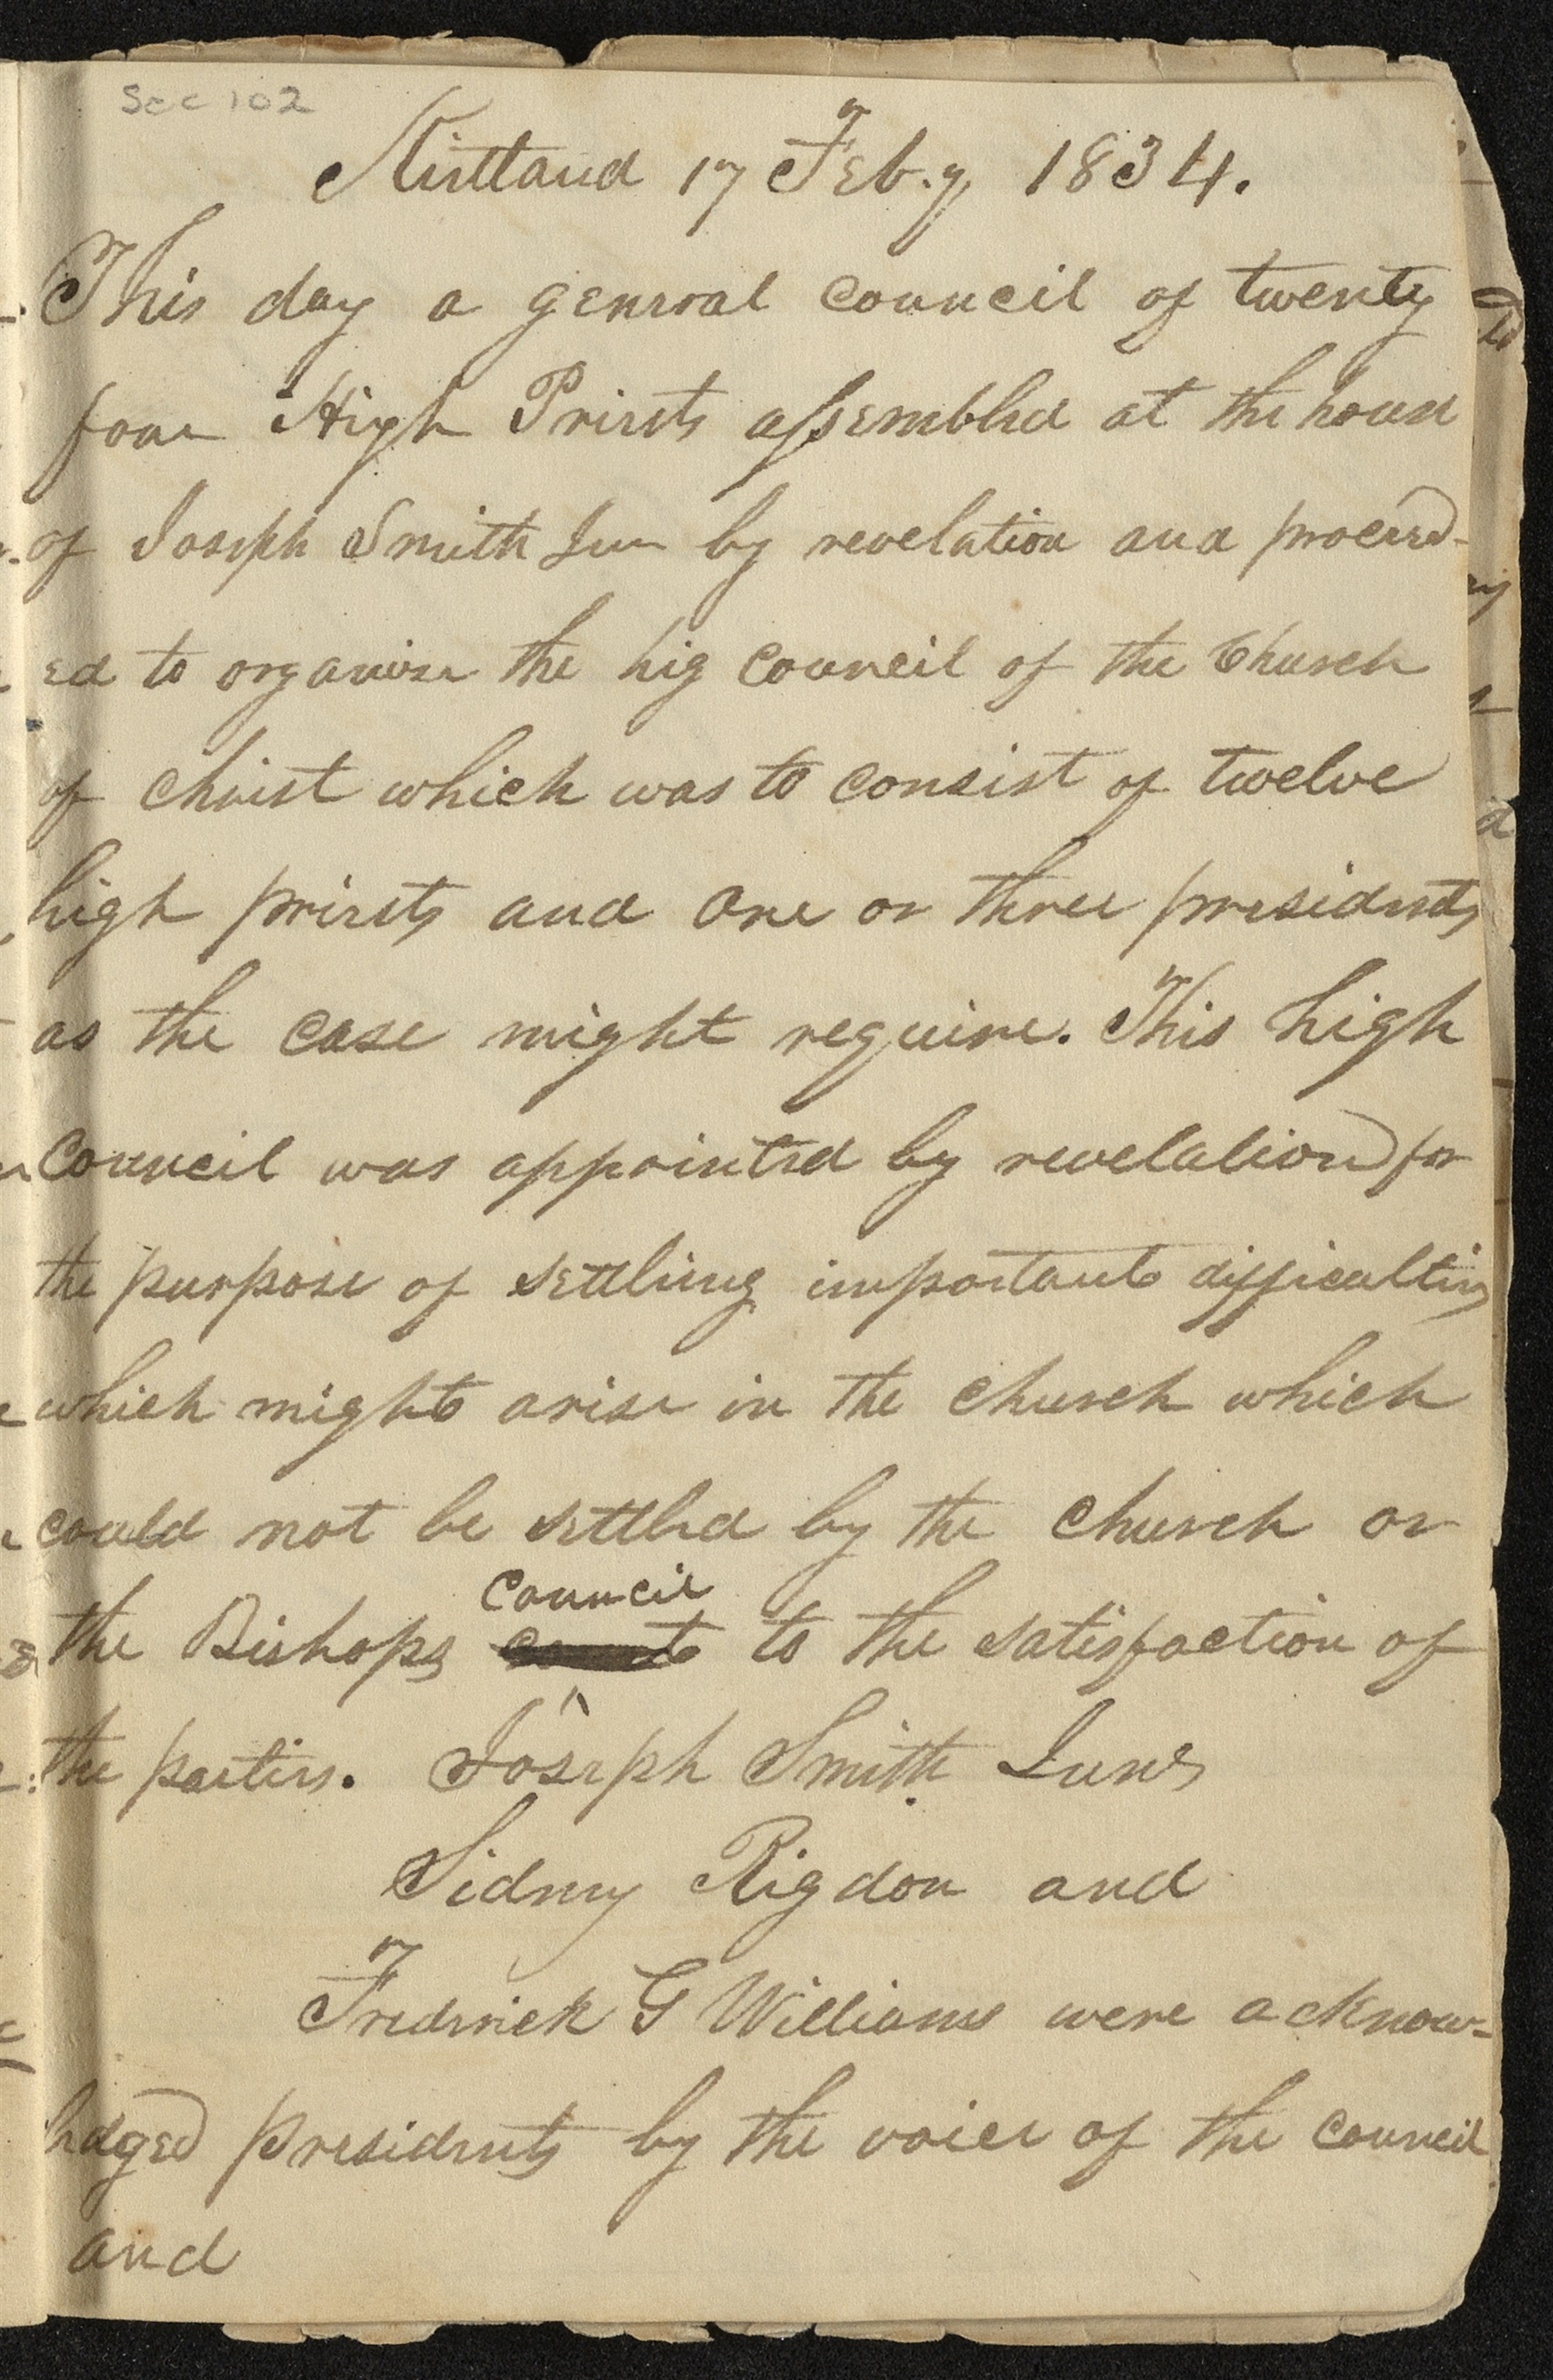 Sec 102
Kirtland 17 Feb.y 1834.
This day a general council of twenty
four High Priests assembled at the house
of Joseph Smith Jun by revelation and proceed-
ed to organise the hig council of the Church
of Christ which was to consist of twelve
high priests and one or three presidents
as the case might require. This high
council was appointed by revelation for
the purpose of settling important difficulties
which might arise in the church which
could not be settled by the church or
council
the Bishops to the satisfaction of
the parties. Joseph Smith Junr
Sidney Rigdon and
Frederick G Williams were acknow-
ledged presidents by the voice of the council
and